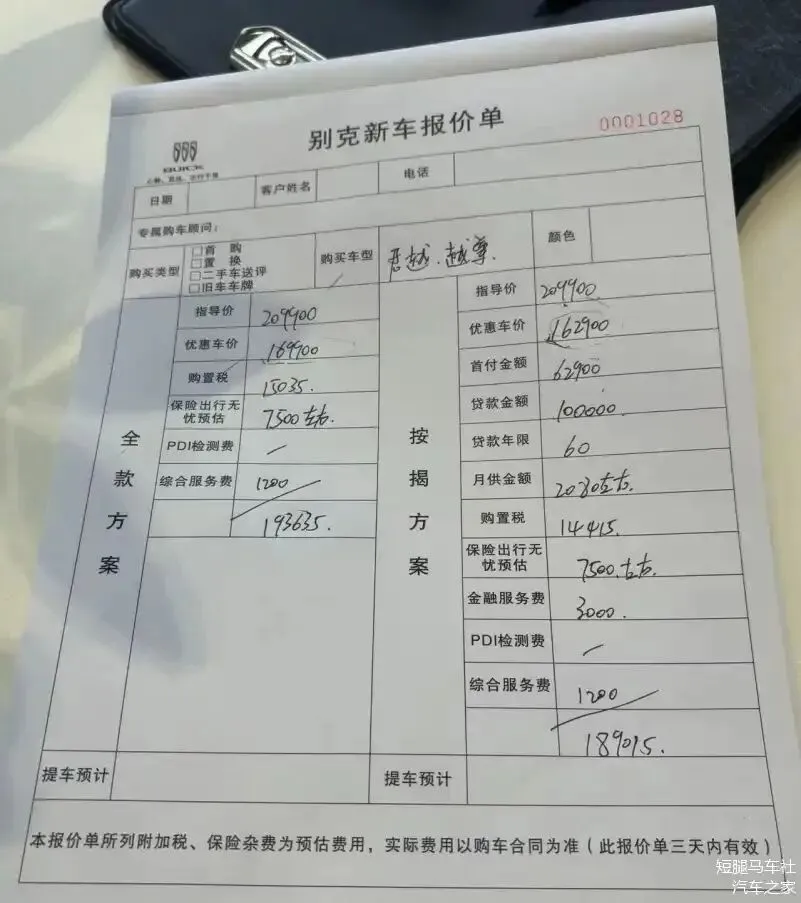 别克新车报价单
0001028
BUICK
心静、思远、志行千里
日期 客户姓名 电话
专属购车顾问：
购买类型 □首 购 □置 换 □二手车送评 □旧车车牌 购买车型 君越.越尊 颜色
全款方案
指导价 209900
优惠车价 169900
购置税 15035.
保险出行无忧预估 7500左右.
PDI检测费 —
综合服务费 1200
193635.
按揭方案
指导价 209900
优惠车价 162900
首付金额 62900
贷款金额 100000.
贷款年限 60
月供金额 2080左右.
购置税 14415.
保险出行无忧预估 7500.左右.
金融服务费 3000.
PDI检测费 —
综合服务费 1200
189015.
提车预计 提车预计
本报价单所列附加税、保险杂费为预估费用，实际费用以购车合同为准（此报价单三天内有效）
短腿马车社
汽车之家